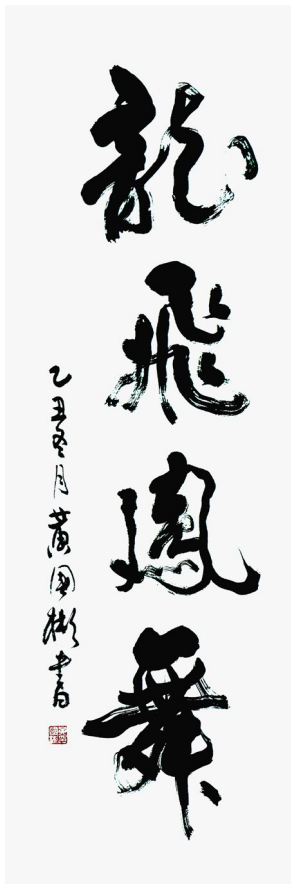 龍飛鳳舞
乙丑冬月黄国彬書